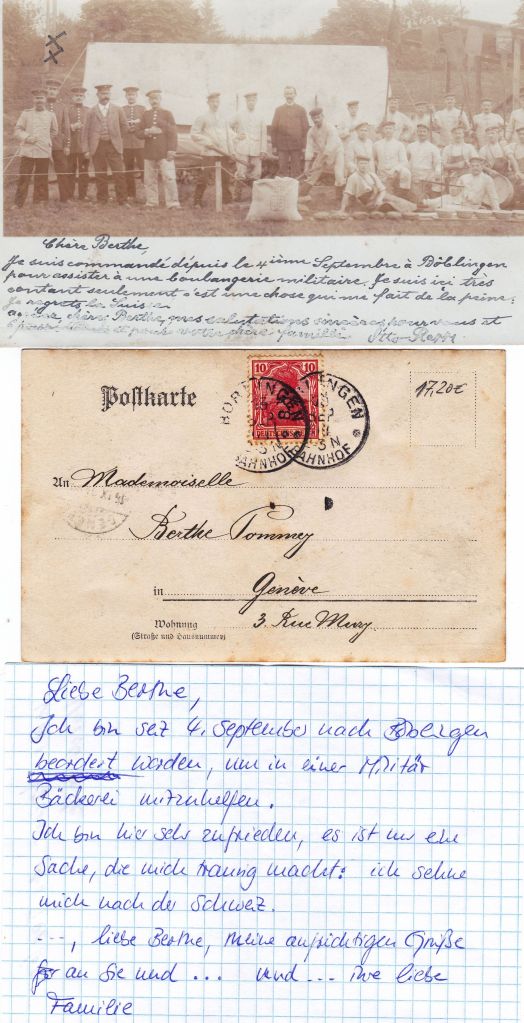 Chère Berthe,
Je suis commandé dépuis le 4ième Septembre à Böblingen
pour assister à une boulangerie militaire. Je suis ici très
contant seulement c'est une chose qui me fait de la peine:
Je regrets la Suis
chère Berthe, mes salutations sincères pour vous et
et pour votre chère famille Otto
Postkarte
10 10
BÖBLINGEN
BAHNHOF
17,20€
An Mademoiselle
Berthe Pommey
in Genève
Wohnung 3. Rue Mury
(Straße und Hausnummer)
Liebe Berthe,
Ich bin seit 4. September nach Böblingen
beordert worden, um in einer Militär
Bäckerei mitzuhelfen.
Ich bin hier sehr zufrieden, es ist nur eine
Sache, die mich traurig macht: ich sehne
mich nach der Schweiz.
..., liebe Berthe, meine aufrichtigen Grüße
an Sie und ... und ... ihre liebe
Familie